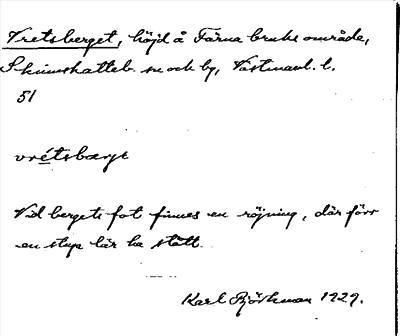 Vretsberget, höjd å Färna bruks område,
Skinnskatteb. sn och by, Västmanl. l.
51
vrétsbærje
Vid bergets fot finnes en röjning, där förr
en stuga lär ha stått.
Karl Björkman 1929.